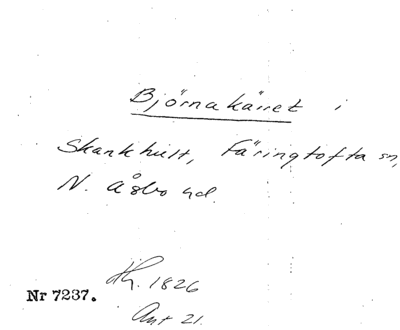 Björnakärret i
Skankhult, Färingtofta sn,
N. Åsbo hd.
Nr 7237.
1826
Akt 21.